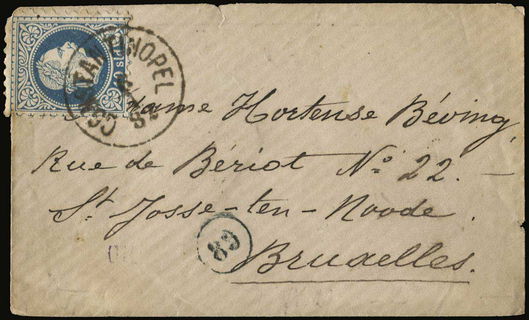 CONSTANTINOPEL
Madame Hortense Béving,
Rue de Bériot No. 22.
St. Josse-ten-Noode.
Bruxelles.
89